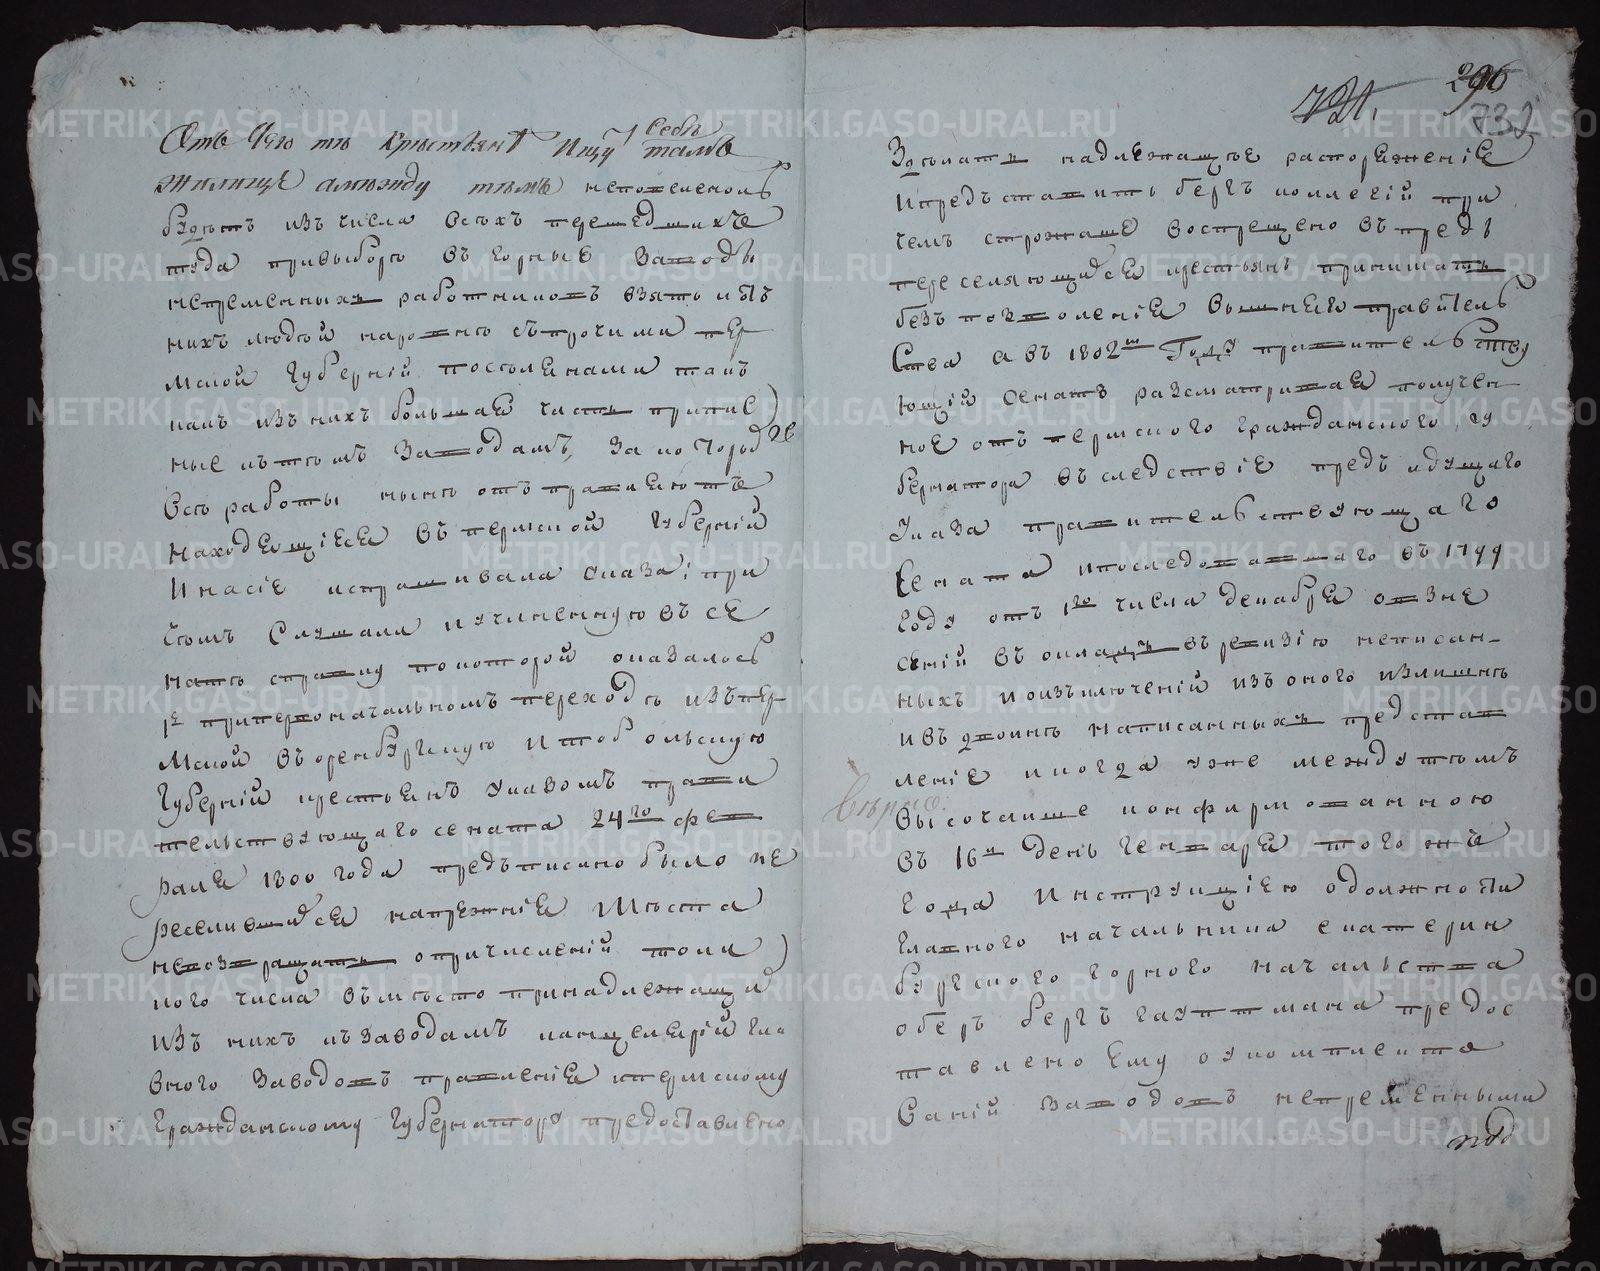 Отъ чего тѣ крестьянѣ ищутъ себѣ тамъ
жилище а между тѣмъ непоженоль
будетъ изъ числа всѣхъ перешедшихъ
туда привыборѣ въ горные заводы
непременныхъ работниковъ взять и изъ
нихъ людей наровнѣ съ прочими пер
мской губерній поселенами такъ
какъ изъ нихъ большая часть припис
ные кътемъ заводамъ, за которыхъ
всѣ работы нынѣ отъправляютъ
находящіеся въ пермской губерній
И на сіе испрашивала указа; при
чемъ слушали учиненную въ се
натѣ справку по которой оказалось
1е припервоначальномъ переходѣ изъ пер
мской въ оренбургскую и тобольскую
губерній крестьянъ указомъ прави
тельствующаго сената 24го фев
раля 1800 года предъписано было пе
реселившихся на прежніе мѣста
невозвращать о причисленій толи
кого числа въмѣсто принадлежащихъ
изъ нихъ къ заводамъ канцелярій гла
вного заводовъ правленія и пермскому
гражданскому губернатору предоставлено
721. 296
732
Зделать надлежащее распоряженіе
и предъставить бергъ коллегій при
чемъ строжаше воспрещено въпредь
переселяющихся крестьянъ принимать
безъ позволенія вышняго правитель
ства а въ 1802м году правительству
ющій сенатъ разсматривая получен
ное отъ пермского гражданского гу
бернатора въ следствіе предъ идущаго
указа правительствующаго
сената и последовавшаго въ 1799
году отъ 1го числа декабря о взне
сеній въ окладъ въ ревизію неписан-
ныхъ и о изъключеній изъ оного излишнѣ
и въ двоинѣ написанныхъ представ
леніе и когда уже между темъ
высочайше конфирмованною
верно.
въ 16й день генваря того же
года инструкціею о должности
главного начальника екатерин
бургского горного начальства
оберъ бергъ гауптмана предос
тавлено ему о укомплекто
ваній заводовъ непременными